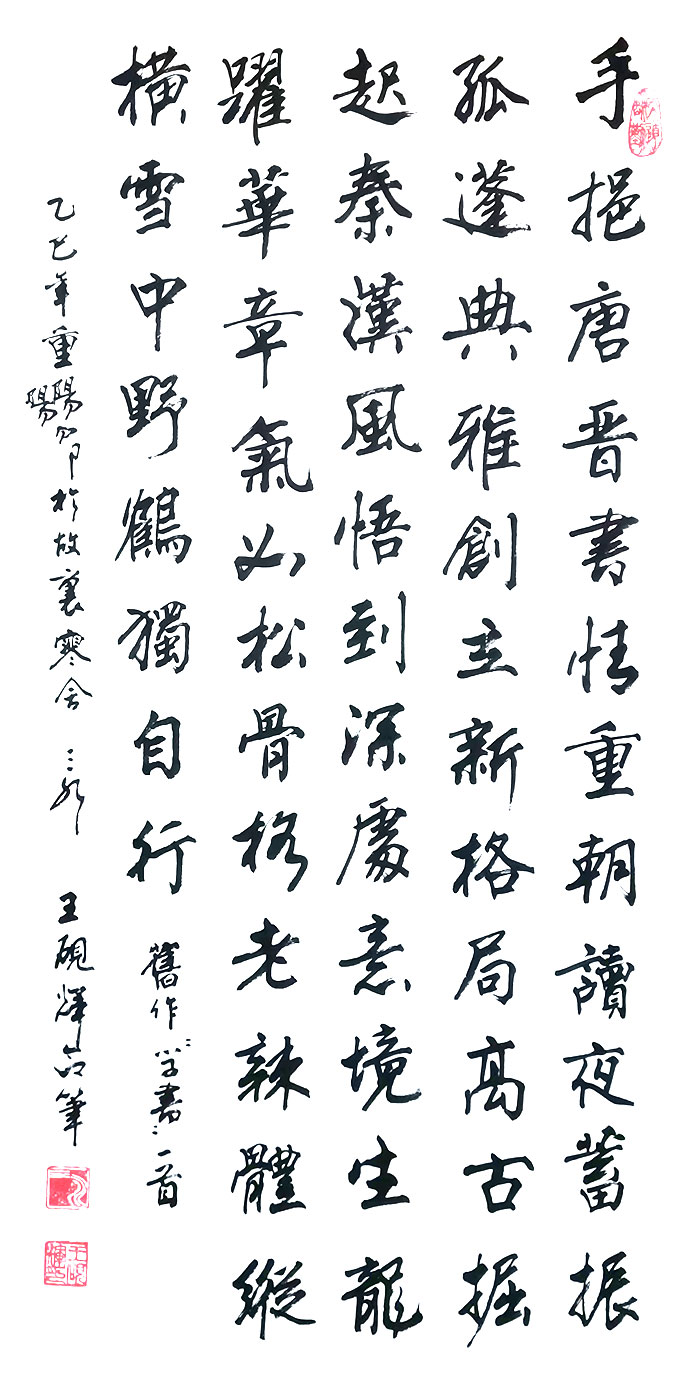 手挹唐晋書情重朝讀夜蓄振
孤蓬典雅創立新格局高古掘
起秦漢風悟到深處意境生龍
躍華章氣如松骨格老辣體縱
橫雪中野鶴獨自行
舊作学書一首
乙巳年重陽節於故裏寒舍 王硯輝 筆
陽
王硯輝印